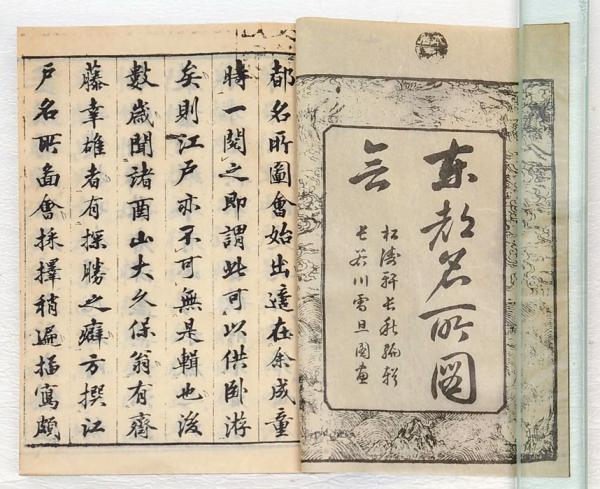 東都名所図
会
松濤軒長秋編輯
長谷川雪旦図画
都名所圖會始出適在余成童
時一閱之即謂此可以供卧游
矣則江戶亦不可無是輯也後
數歲聞諸酉山大久保翁有齋
藤幸雄者有探勝之癖方撰江
戶名所啚會採擇稍遍描寫頗